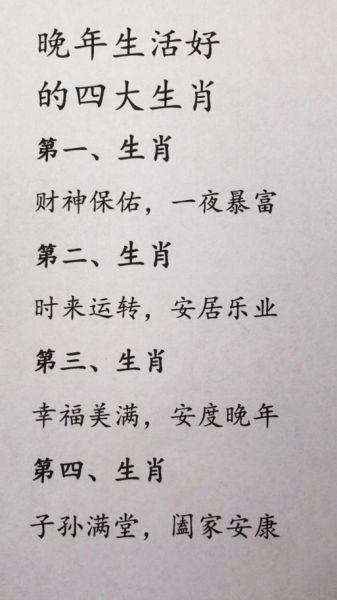 晚年生活好
的四大生肖
第一、生肖
财神保佑，一夜暴富
第二、生肖
时来运转，安居乐业
第三、生肖
幸福美满，安度晚年
第四、生肖
子孙满堂，阖家安康